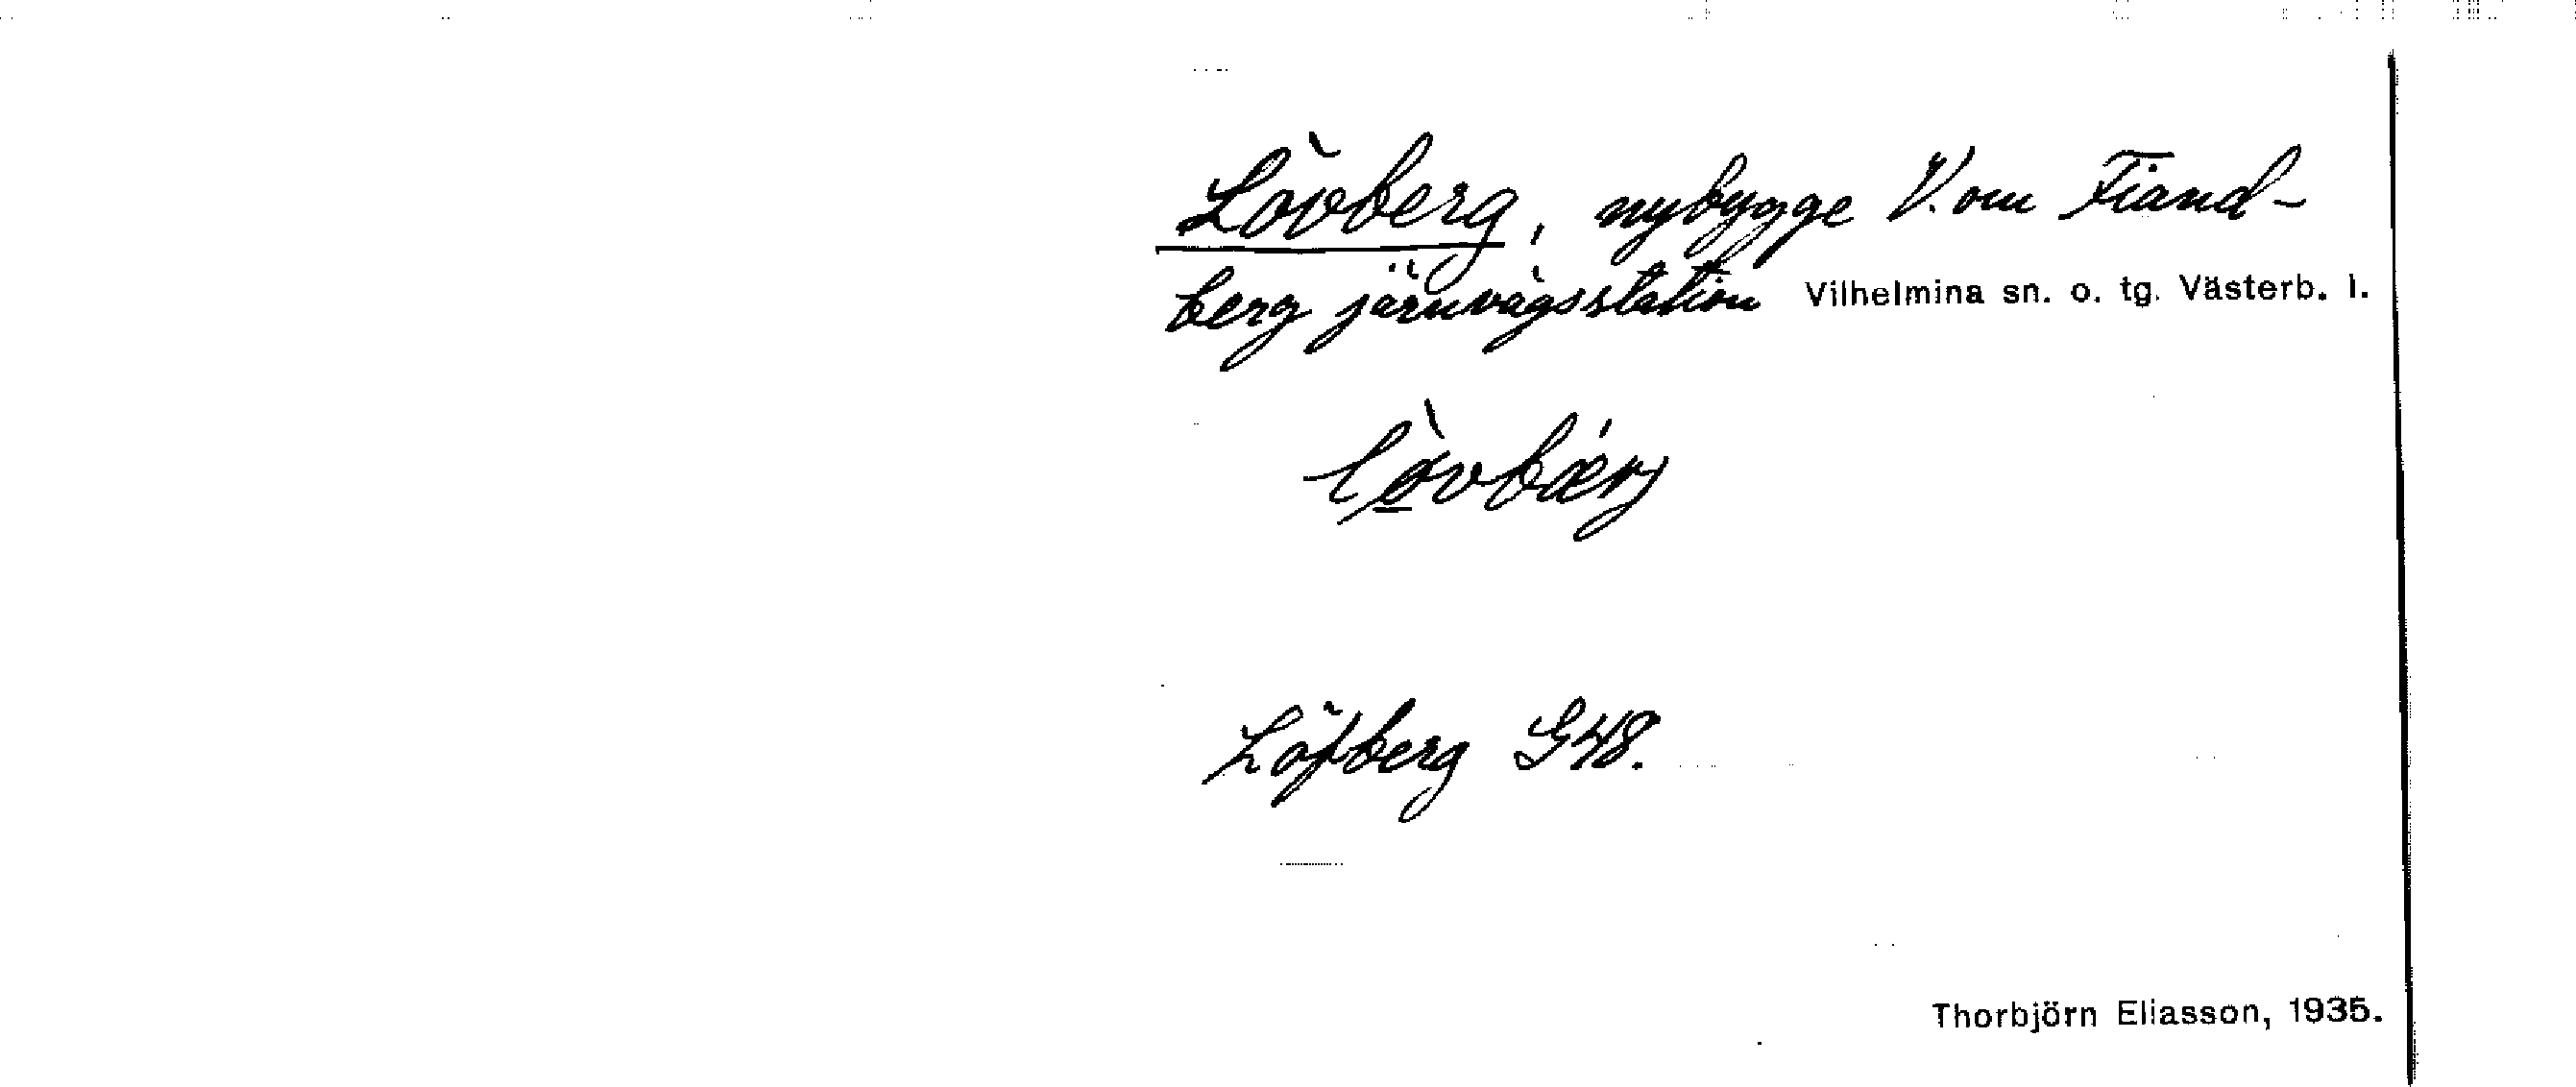 Lövberg, nybygge V. om Fiand-
berg järnvägsstation Vilhelmina sn. o. tg. Västerb. l.
Löfberg G48.
Thorbjörn Eliasson, 1935.